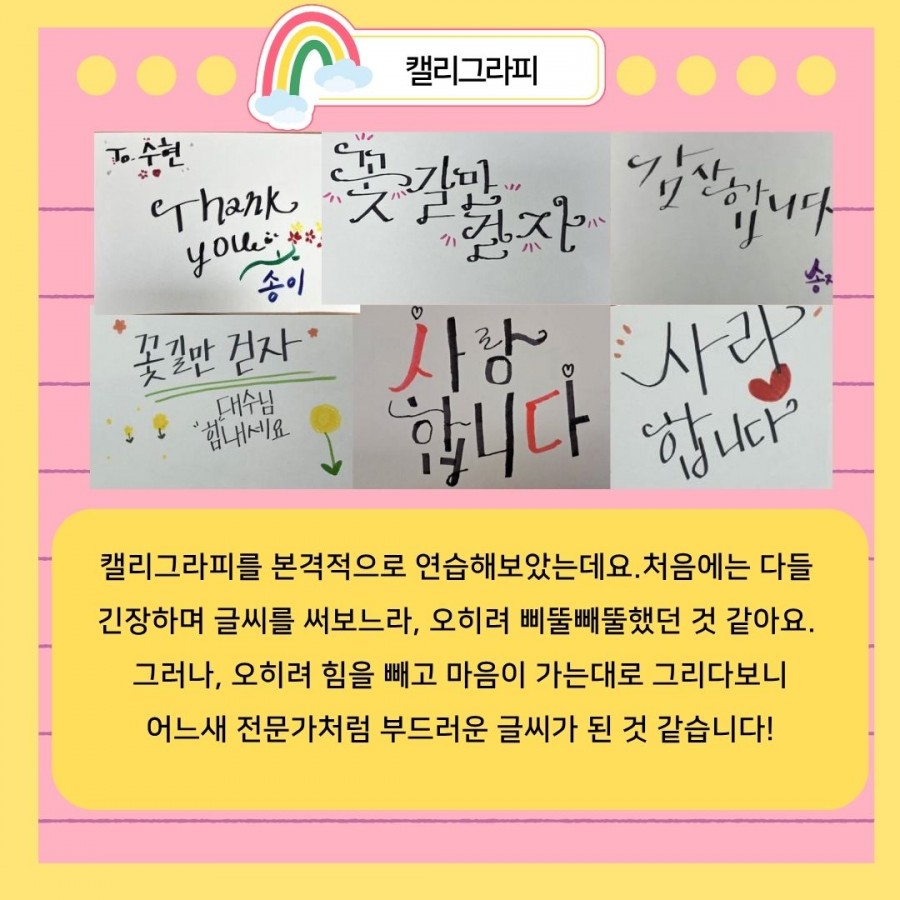 캘리그라피
To. 수현
Thank
you
송이
꽃길만
걸자
감사합니다
꽃길만 걷자
대수님
"힘내세요
사랑
합니다
사랑
합니다
캘리그라피를 본격적으로 연습해보았는데요.처음에는 다들
긴장하며 글씨를 써보느라, 오히려 삐뚤빼뚤했던 것 같아요.
그러나, 오히려 힘을 빼고 마음이 가는대로 그리다보니
어느새 전문가처럼 부드러운 글씨가 된 것 같습니다!